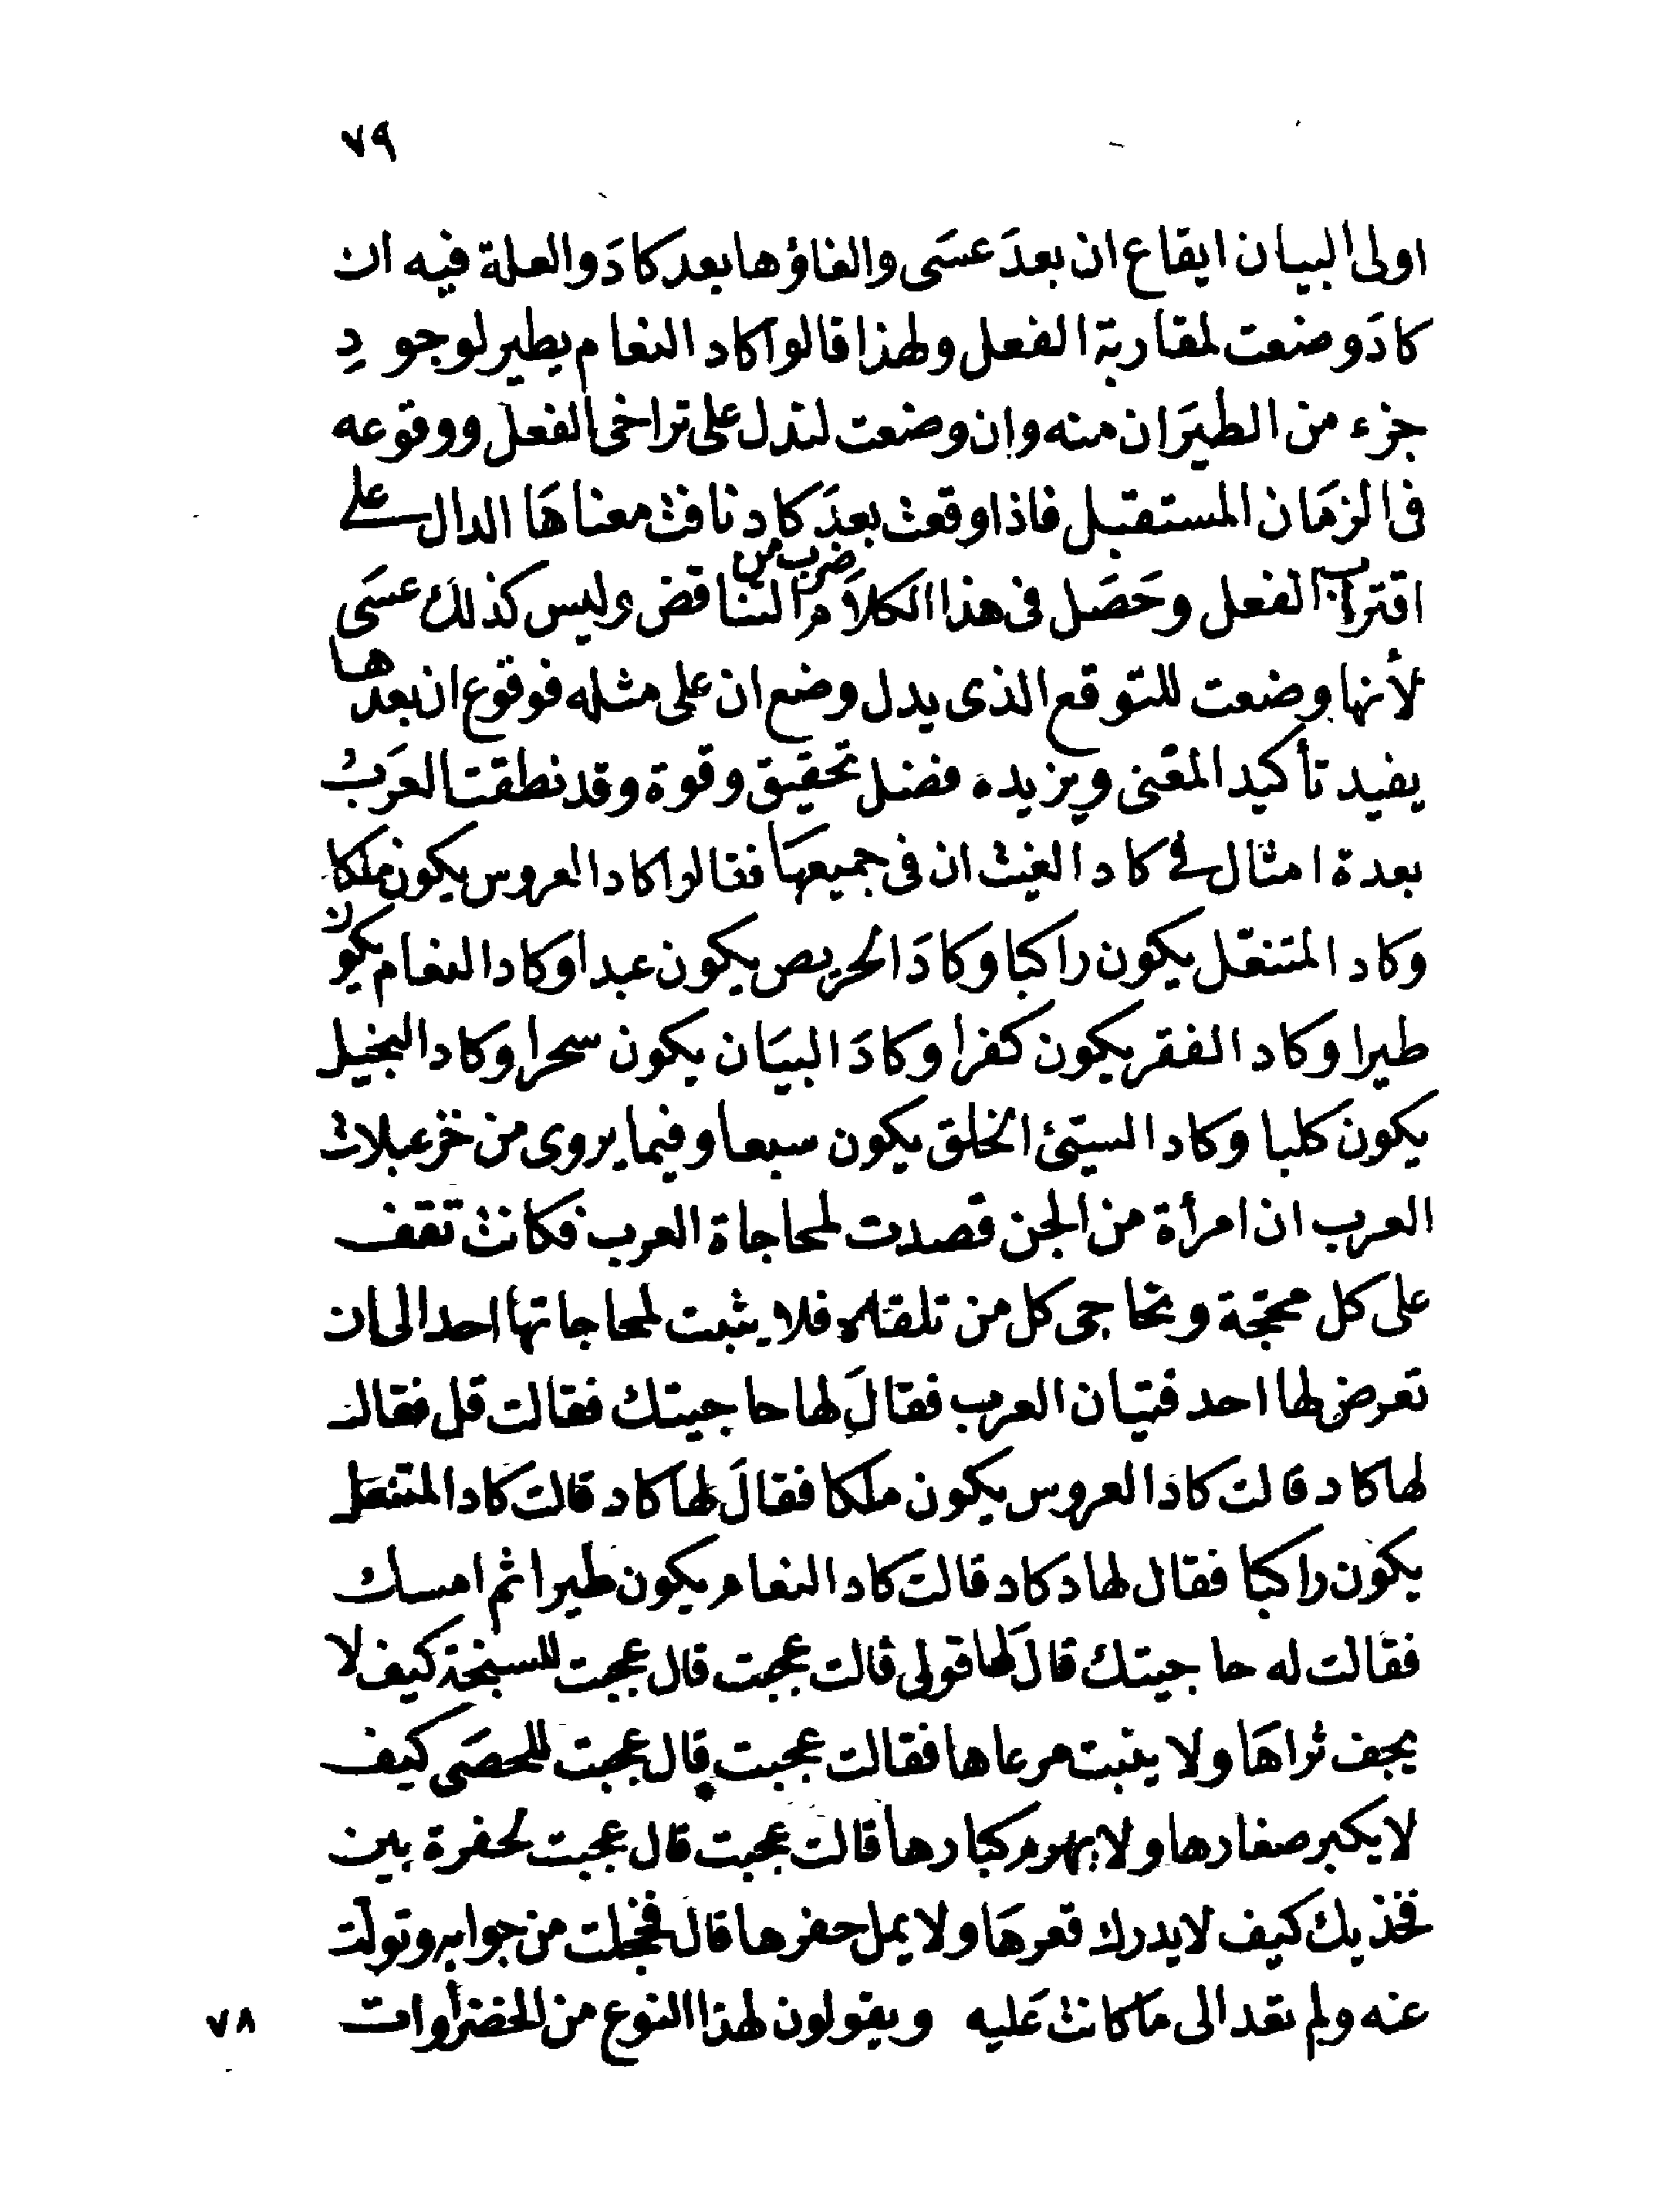 ٧٩
اولى البيان ايقاع ان بعدَ عسَى والغاؤها بعد كادَ والعلة فيه ان
كادَ وضعت لمقاربة الفعل ولهذا قالوا كاد النعام يطير لوجودِ
جزء من الطيَران منه وان وضعت لتدل على تراخى الفعل ووقوعه
فى الزمَان المستقبل فاذا وقعت بعدَ كاد نافت معناهَا الدال على
اقتراب الفعل وحَصَل فى هذا الكلاَم ضرب من التناقض وليس كذلك عسَى
لأنها وضعت للتوقع الذى يدل وضع ان على مثله فوقوع ان بعدها
يفيد تأكيد المعنى ويزيده فضل تحقيق وقوة وقد نطقت العرَب
بعدة امثال فى كاد الغيت ان فى جميعهَا فقالوا كاد العروس يكون ملكا
وكاد المتنعّل يكون راكبا وكادَ الحريص يكون عبدا وكاد النعام يكون
طيرا وكاد الفقر يكون كفرا وكادَ البيَان يكون سحرا وكاد البخيل
يكون كلبا وكاد السيّئ الخلق يكون سبعا وفيما يروى من خزعبلات
العرب ان امرأة من الجن قصدت لمحاجاة العرب فكانت تقف
على كل محجّة وتحاجى كل من تلقاه فلا يثبت لمحاجاتها احد الى ان
تعرض لها احد فتيان العرب فقالَ لها حاجيتك فقالت قل فقال
لها كاد قالت كاد العروس يكون ملكا فقالَ لها كاد قالت كاد المتنعل
يكون راكبا فقال لها د كاد قالت كاد النعام يكون طيرا ثم امسك
فقالت له حاجيتك قالَ لها قولى قالت عجبت قال عجبت للسبخة كيف لا
يجف ثراهَا ولا ينبت مرعاها فقالت عجبت قال عجبت للحصَى كيف
لا يكبر صغارها ولا يهرم كبارها قالت عجبت قال عجبت لحفرة بين
فخذيك كيف لا يدرك قعرهَا ولا يمل حفرها قال فخجلت من جوابه وتولت
عنه ولم تعد الى مَا كانت عَليه ويقولون لهذا النوع من الخضرأوات
٧٨